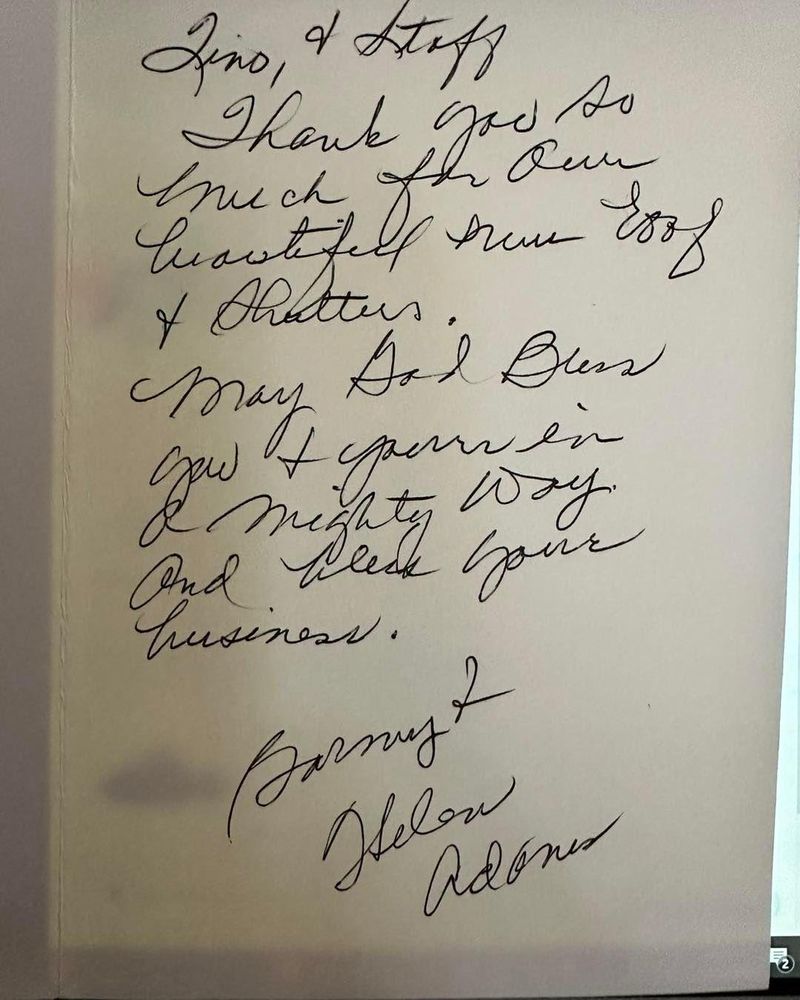 Tino, & Staff
Thank you so
much for our
beautiful new Roof
& Shutters.
May God Bless
you & yours in
a mighty Way.
And bless your
business.
&
Helen
2